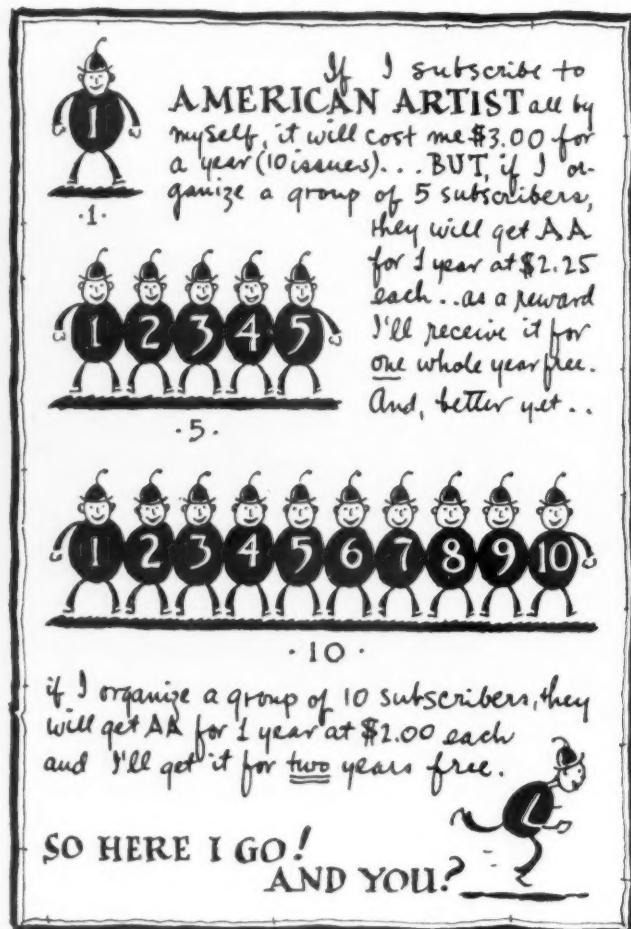 If I subscribe to
AMERICAN ARTIST all by
myself, it will cost me $3.00 for
a year (10 issues)... BUT, if I or-
ganize a group of 5 subscribers,
they will get AA
for 1 year at $2.25
each.. as a reward
I'll receive it for
one whole year free.
And, better yet..
1
·1·
1 2 3 4 5
·5·
1 2 3 4 5 6 7 8 9 10
·10·
if I organize a group of 10 subscribers, they
will get AA for 1 year at $2.00 each
and I'll get it for two years free.
SO HERE I GO!
AND YOU?
1